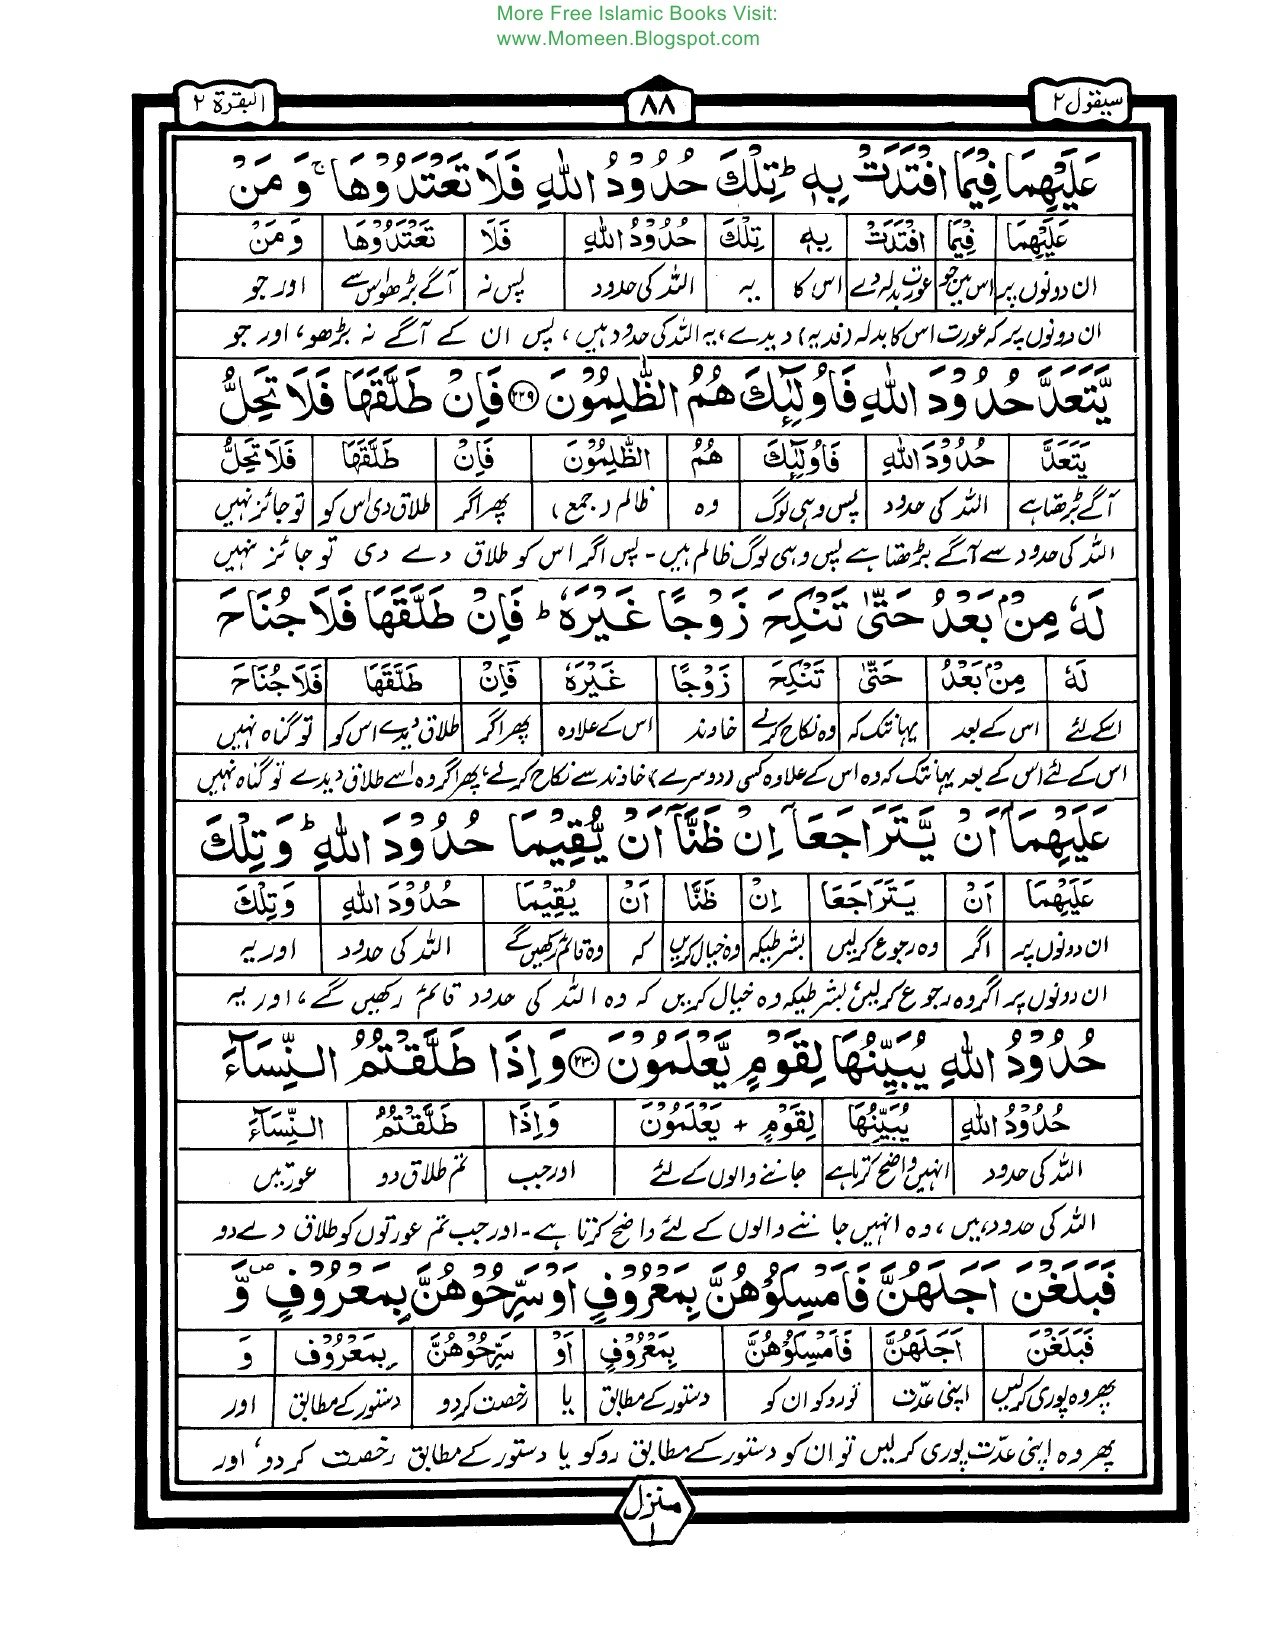 More Free Islamic Books Visit:
www.Momeen.Blogspot.com
سیقول ۲ ۸۸ البقرة ۲
عَلَيْهِمَا فِيْمَا افْتَدَتْ بِهٖ ؕ تِلْكَ حُدُوْدُ اللّٰهِ فَلَا تَعْتَدُوْهَا ۚ وَ مَنْ
عَلَيْهِمَا فِيْمَا افْتَدَتْ بِهٖ تِلْكَ حُدُوْدُ اللّٰهِ فَلَا تَعْتَدُوْهَا وَ مَنْ
ان دونوں پر اس میں جو عورت بدلہ دے اس کا یہ اللہ کی حدود پس نہ آگے بڑھو اس سے اور جو
ان دونوں پر کہ عورت اس کا بدلہ (فدیہ) دیدے، یہ اللہ کی حدود ہیں، پس ان کے آگے نہ بڑھو، اور جو
يَّتَعَدَّ حُدُوْدَ اللّٰهِ فَاُولٰٓئِكَ هُمُ الظّٰلِمُوْنَ ﴿۲۲۹﴾ فَاِنْ طَلَّقَهَا فَلَا تَحِلُّ
يَتَعَدَّ حُدُوْدَ اللّٰهِ فَاُولٰٓئِكَ هُمُ الظّٰلِمُوْنَ فَاِنْ طَلَّقَهَا فَلَا تَحِلُّ
آگے بڑھتا ہے اللہ کی حدود پس وہی لوگ وہ ظالم (جمع) پھر اگر طلاق دی اس کو تو جائز نہیں
اللہ کی حدود سے آگے بڑھتا ہے پس وہی لوگ ظالم ہیں - پس اگر اس کو طلاق دے دی تو جائز نہیں
لَهٗ مِنْۢ بَعْدُ حَتّٰى تَنْكِحَ زَوْجًا غَيْرَهٗ ؕ فَاِنْ طَلَّقَهَا فَلَا جُنَاحَ
لَهٗ مِنْۢ بَعْدُ حَتّٰى تَنْكِحَ زَوْجًا غَيْرَهٗ فَاِنْ طَلَّقَهَا فَلَا جُنَاحَ
اسکے لئے اس کے بعد یہانتک کہ وہ نکاح کرلے خاوند اس کے علاوہ پھر اگر طلاق دیدے اس کو تو گناہ نہیں
اس کے لئے اس کے بعد یہانتک کہ وہ اس کے علاوہ کسی (دوسرے) خاوند سے نکاح کرلے، پھر اگر وہ اسے طلاق دیدے تو گناہ نہیں
عَلَيْهِمَاۤ اَنْ يَّتَرَاجَعَاۤ اِنْ ظَنَّاۤ اَنْ يُّقِيْمَا حُدُوْدَ اللّٰهِ ؕ وَ تِلْكَ
عَلَيْهِمَا اَنْ يَتَرَاجَعَا اِنْ ظَنَّا اَنْ يُقِيْمَا حُدُوْدَ اللّٰهِ وَ تِلْكَ
ان دونوں پر اگر وہ رجوع کرلیں بشرطیکہ وہ خیال کریں کہ وہ قائم رکھیں گے اللہ کی حدود اور یہ
ان دونوں پر اگر وہ رجوع کرلیں بشرطیکہ وہ خیال کریں کہ وہ اللہ کی حدود قائم رکھیں گے، اور یہ
حُدُوْدُ اللّٰهِ يُبَيِّنُهَا لِقَوْمٍ يَّعْلَمُوْنَ ﴿۲۳۰﴾ وَ اِذَا طَلَّقْتُمُ النِّسَآءَ
حُدُوْدُ اللّٰهِ يُبَيِّنُهَا لِقَوْمٍ + يَعْلَمُوْنَ وَ اِذَا طَلَّقْتُمُ النِّسَآءَ
اللہ کی حدود انہیں واضح کرتا ہے جاننے والوں کے لئے اور جب تم طلاق دو عورتیں
اللہ کی حدود ہیں، وہ انہیں جاننے والوں کے لئے واضح کرتا ہے - اور جب تم عورتوں کو طلاق دے دو
فَبَلَغْنَ اَجَلَهُنَّ فَاَمْسِكُوْهُنَّ بِمَعْرُوْفٍ اَوْ سَرِّحُوْهُنَّ بِمَعْرُوْفٍ ۪ وَّ
فَبَلَغْنَ اَجَلَهُنَّ فَاَمْسِكُوْهُنَّ بِمَعْرُوْفٍ اَوْ سَرِّحُوْهُنَّ بِمَعْرُوْفٍ وَ
پھر وہ پوری کرلیں اپنی عدت تو روکو ان کو دستور کے مطابق یا رخصت کردو دستور کے مطابق اور
پھر وہ اپنی عدت پوری کرلیں تو ان کو دستور کے مطابق روکو یا دستور کے مطابق رخصت کردو، اور
منزل ۱